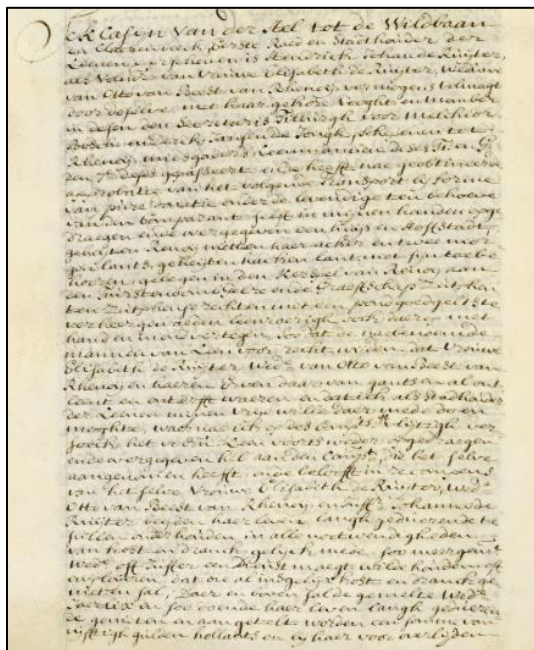 Ick Casijn van der Hel tot de Wildbaan
en Eerste Raed en Stadthouder der
Leenen, verschenen is Hendrick Johan de Ruijter,
als van Vrouw Elisabeth de Ruijter, Weduwe
van Otto van Beest van Rhenoij vermogens Volmagt
door deselve, met haar gekore Vooght en Mamber
in desen den Secretaris voor Melchior
en Derk Jansen de Jongh, schepenen tot
Rhenoij, mitsgaders Leenmannen deses
den deses gepasseert, ende heeft nae geobtineerde
approbatie van het volgende Transport bij forme
van pure onder de levendige ten behoeve
van den Comparant self in mijnen handen opge
draegen ende overgegeven een huijs en Hoffstadt,
geheijten Renoij met haer acker, en twee mor
gen lants, geheijten lant, met sijn toebe
hooren, gelegen in den Kerspel van Renoij, aan
den Furstendom Gelre ende Graeffschap Zutphen
ten Zutphense rechten met een pond goed gelts te
verheergewaeden leenroerigh, ook daerop met
hand en mond vertegen, soo dat de naebenoemde
mannen van Leen voor recht wijsden, dat Vrouwe
Elisabeth de Ruijter Wed. van Otto van Beest van
Rhenoij en haeren Erven daar van gants en al ont
leent en onterfft waeren en dat ick als stadhouder
der Leenen mijnen vrije wille daer mede doen
moghte, waer nae ick op des Comp.ts vlijtigh ver
soeck het voorsz. Leen voorts weder, opgedraegen
ende overgegeven heb aan den Comp.t, die het selve
aangenomen heeft, ende belooft in recompens
van het selve Vrouwe Elisabeth de Ruijter, Wed.
Otto van Beest van Rhenoij, en Juffr. Johanna de
Ruijter beijden haer leven langh geduerende te
sullen onderhouden, in alle nootwendigheden
van kost en dranck, gelijk mede, soo meergem.
Wed. off Juffer een Dienst maegt wilde houden off
employeren, dat die al insgelijx kost en dranck ge
nieten sal, Daer en boven sal de gemelte Wed.
Jaerlix en soo voorts haer leven langh geduerende
genieten en aangetelt worden een somme van
vijfftigh gulden hollants en bij haer voor overlijden